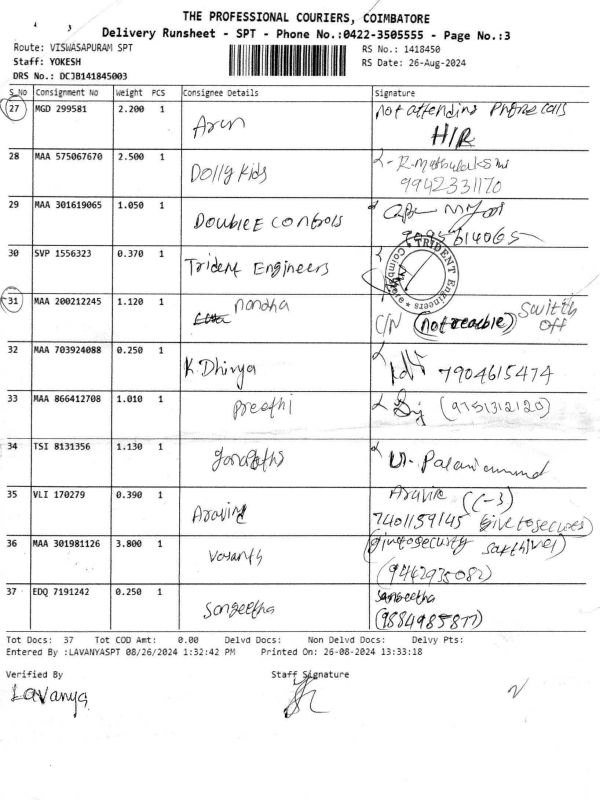 THE PROFESSIONAL COURIERS, COIMBATORE
Delivery Runsheet - SPT - Phone No.:0422-3505555 - Page No.:3
Route: VISWASAPURAM SPT
RS No.: 1418450
Staff: YOKESH
RS Date: 26-Aug-2024
DRS No.: DCJB141845003
S.No Consignment No Weight PCS Consignee Details Signature
27 MGD 299581 2.200 1 Arun not attending Phone calls
H/R
28 MAA 575067670 2.500 1 Dolly Kids
9942331170
29 MAA 301619065 1.050 1 Double E Controls
30 SVP 1556323 0.370 1 Trident Engineers
TRIDENT Engineers * Coimbatore *
31 MAA 200212245 1.120 1 nandha C/N (not reachble) Switth
off
32 MAA 703924088 0.250 1 K. Dhivya 7904615474
33 MAA 866412708 1.010 1 Preethi (9751312120)
34 TSI 8131356 1.130 1
35 VLI 170279 0.390 1 Aravind Aravin (C-3)
7401159145
36 MAA 301981126 3.800 1 Vasanth (give to security sakthivel)
(9442935082)
37 EDQ 7191242 0.250 1 Sangeetha Sangeetha
(9884985877)
Tot Docs: 37 Tot COD Amt: 0.00 Delvd Docs: Non Delvd Docs: Delvy Pts:
Entered By :LAVANYASPT 08/26/2024 1:32:42 PM Printed On: 26-08-2024 13:33:18
Verified By Staff Signature
Lavanya